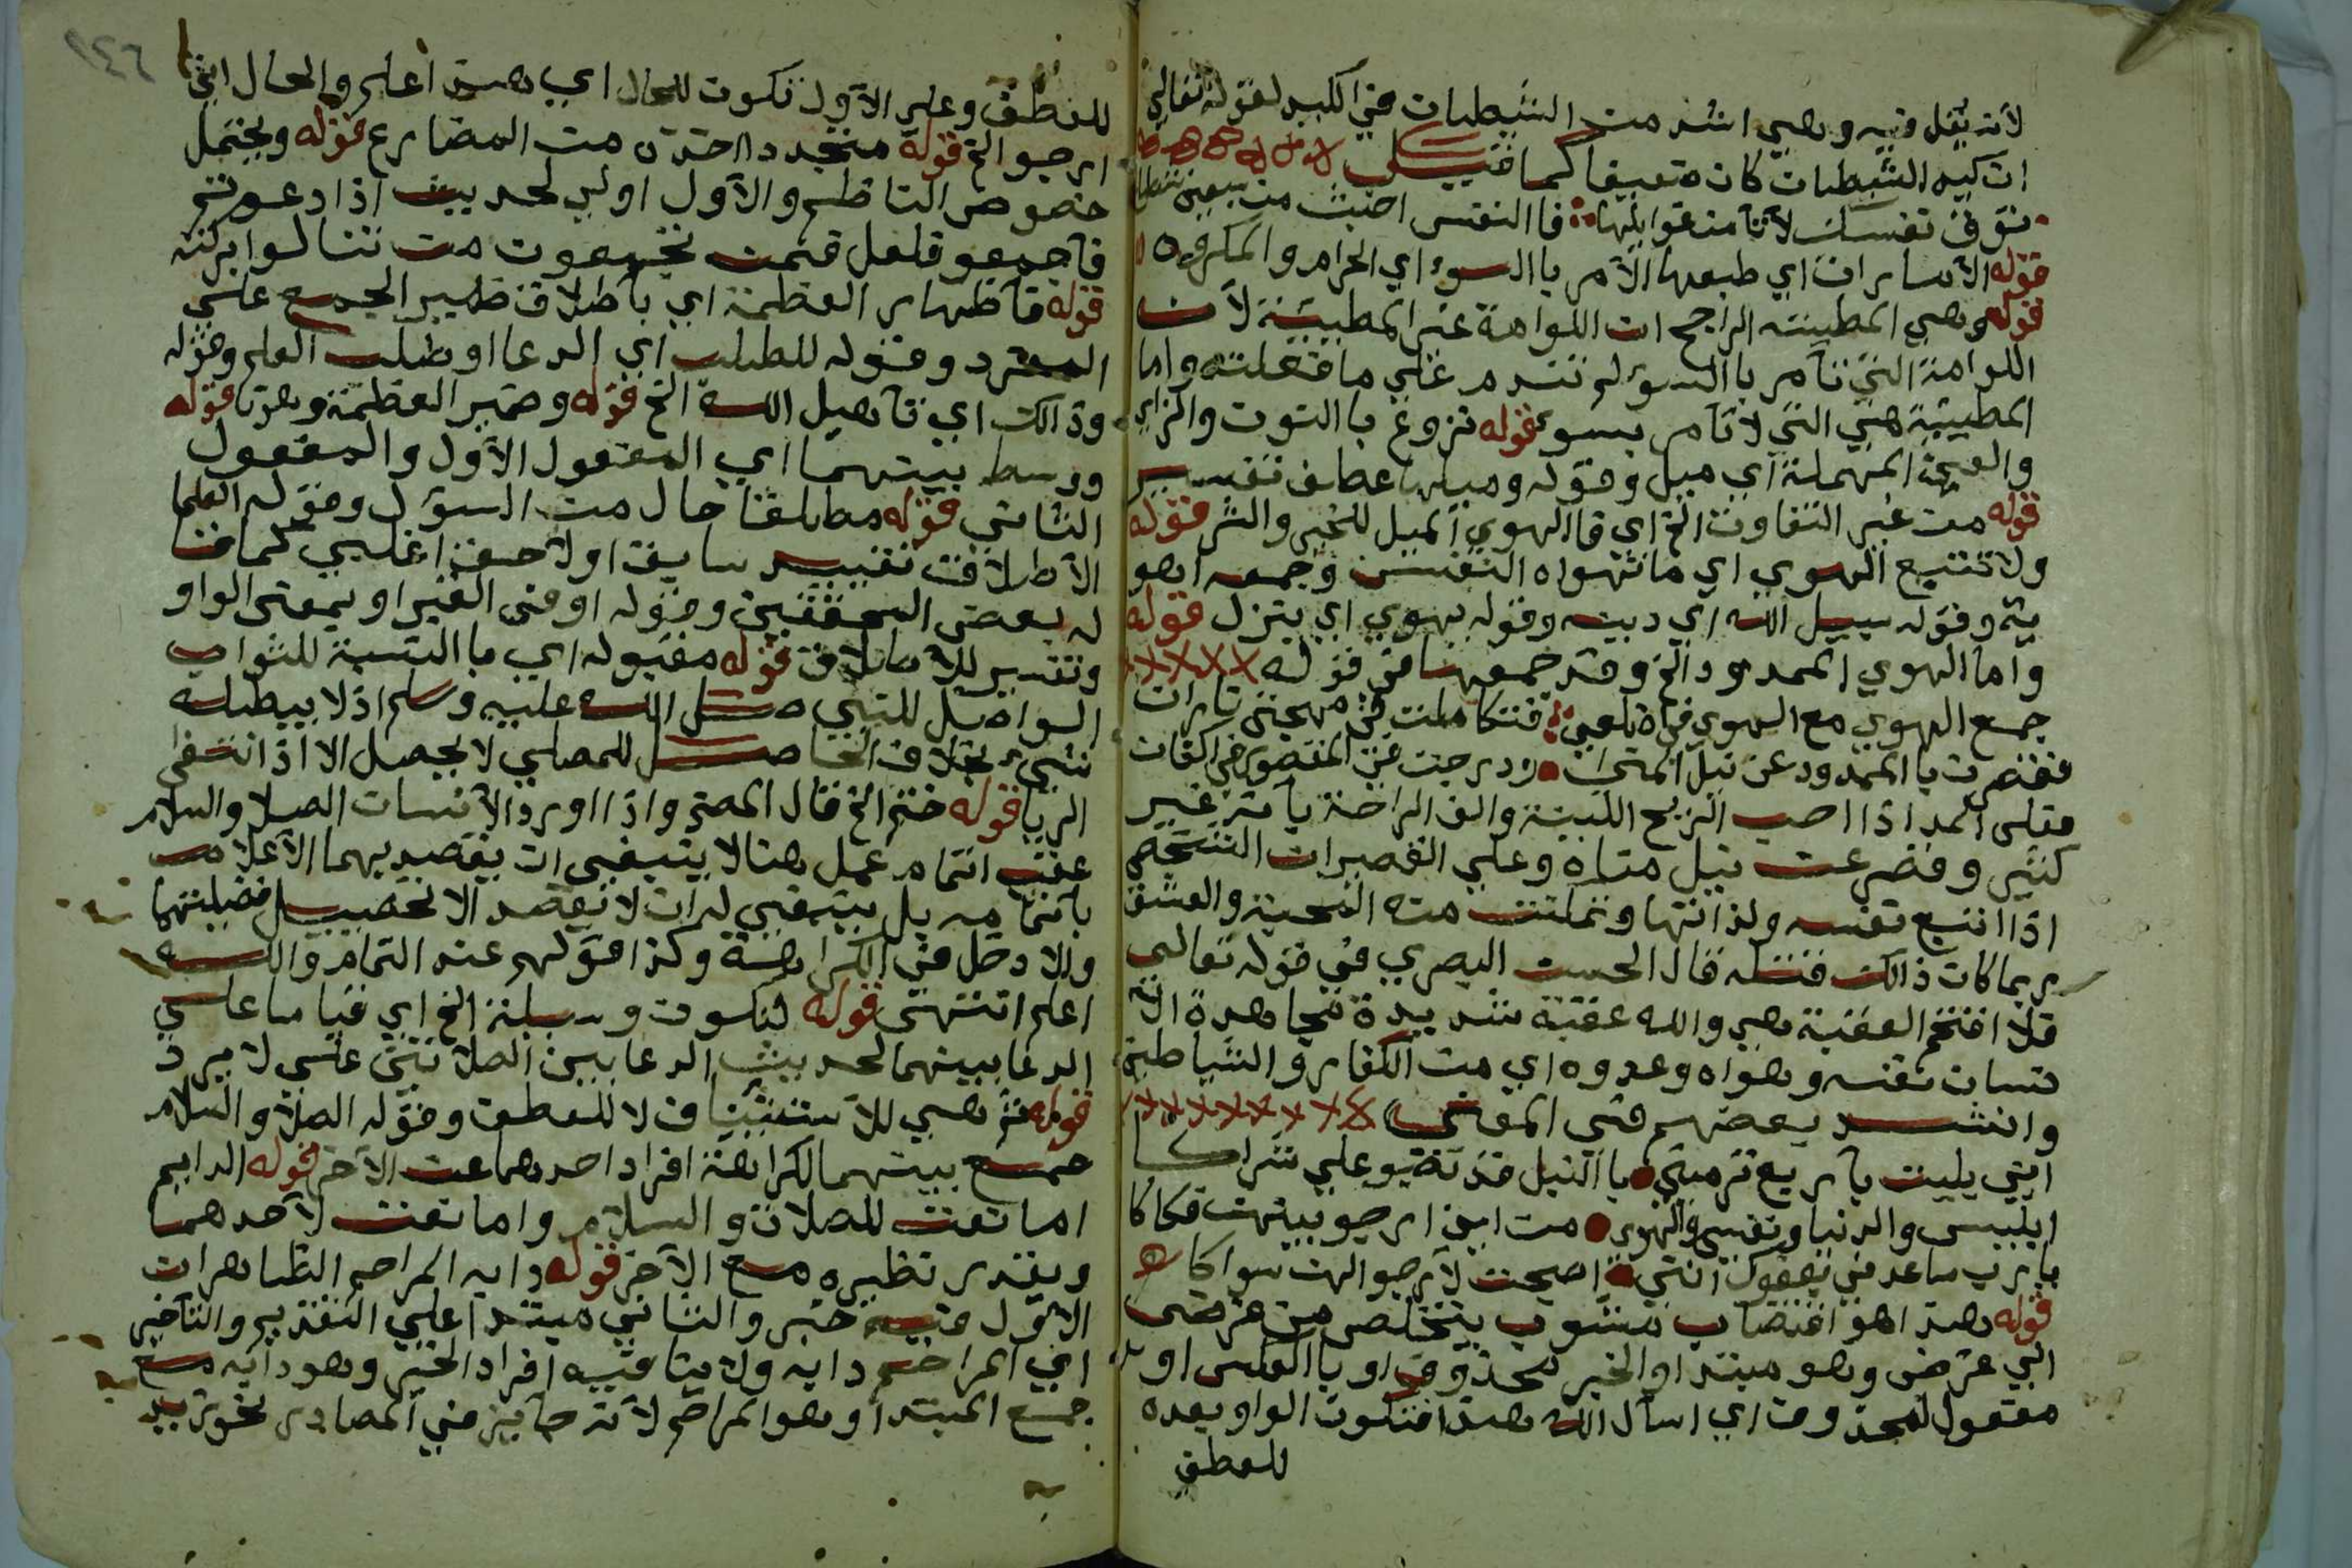 لانه يقل فيه وهي اشد من الشيطان في الكيد لقوله تعالي
ان كيد الشيطان كان ضعيفا كما قيل
توق نفسك لا تامن غوايلها فا النفس اخبث من سبعين شيطانا
قوله الامارات اي طبعها الامر با السوء اي الحرام والمكروه
قوله وهي المطيينه الراجح ان اللوامة غير المطيينة لان
اللوامة التي تامر با السوء ثم تندم علي ما فعلته واما
المطيينة هي التي لا تامر بسوء قوله تزوغ با النون والزاي
والعين المهملة اي ميل وقوله وميلها عطف تفسير
قوله من غير التفاوت الخ اي فا الهوي الميل للخير والشر قوله
ولا تتبع الهوي اي ما تهواه النفس وجمعه اهو
ية وقوله سبيل الله اي دينه وقوله يهوي اي ينزل قوله
واما الهوي الممدود الخ وقد جمعهما في قوله
جمع الهوي مع الهوي في اضلعي فتكاملت في مهجتي ناران
فقصرت با الممدود عن نيل المني ودرجت في المقصور في اكفان
فقلي المد اذا احب الريح اللينة والف الراحة يأتيه غير
كثير وقصر عن نيل مناه وعلي القصيران الشخص
اذا اتبع نفسه ولذاتها وتملكت منه المحبة والعشق
ربما كان ذالك قتله قال الحسن البصري في قوله تعالي
فلا اقتحم العقبة هي والله عقبة شديدة مجاهدة الا
نسان نفسه وهواه وعدوه اي من الكفار والشياطين
وانشد بعضهم في المعني
اني بليت باربع ترميني با النبل قد نصبو علي شراكا
ابليس والدنيا ونفسي والهوي من اين ارجو بينهن فكاكا
يارب ساعدني بعفوك انني اصبحت لا ارجو الهن سواكا
قوله هذا هو اقتضاب مشوب بتخلص من غرض
الي غرض وهو مبتدا والخبر محذوف او با العكس او
مفعول لمحذوف اي اسال الله هذا فتكون الواو بعده
للعطف
١٤٦
للعطف وعلي الاول تكون للحال اي هذا اعلم والحال اني
ارجو الخ قوله متجدد الحدث من المضارع قوله ويحتمل
خصوص الناظم والاول اولي لحديث اذا دعوتم
فاجمعو فلعل فيمن تجمعون من تنالوا بركته
قوله فاظهار العظمة اي باطلاق ضمير الجمع علي
المفرد وقوله للطلب اي الدعا او طلب العلم وقوله
وذالك اي تاهيل الله الخ قوله وضمير العظمة وهونا قوله
ووسط بينهما اي المفعول الاول والمفعول
الثاني قوله مطلقا حال من السؤل وقوله العلما
الاطلاق تقييد سابق اولاحق اغلبي كما
له بعض المحققين وقوله او في الغير او بمعني الواو
وتفسير للاطلاق قوله مقبوله اي با النسبة للثواب
الواصل للنبي صلي الله عليه وسلم اذ لا يبطله
شيء بخلاف الحاصل للمصلي لا يحصل الا اذا انتفي
الريا قوله ختم الخ قال المصر واذا اورد الانسان الصلا والسلام
عقب اتمام عمل هنا لا ينبغي ان يقصد بهما الاعلام
باتمامه بل ينبغي له ان لا يقصد الا تحصيل فضيلتهما
والا دخل في الكراهة وكذا قولهم عند التمام والله
اعلم انتهي قوله لتكون وسيلة الخ اي قياسا علي
الدعا بينهما لحديث الدعا بين الصلاتين علي لا يرد
قوله ثم هي للاستئناف لا للعطف وقوله الصلاة والسلام
جمع بينهما لكراهة افراد احدهما عن الاخر قوله الدايم
اما نعت للصلاة والسلام واما نعت لاحدهما
ويقدر نظيره مع الاخر قوله دايه المراحم الظاهران
الاول فيه خبر والثاني مبتدا علي التقديم والتاخير
اي المراحم دايه ولا ينافيه افراد الخبر وهو دايه مع
جمع المبتدا وهو المراحم لانه جايز في المصادر نحو زيد